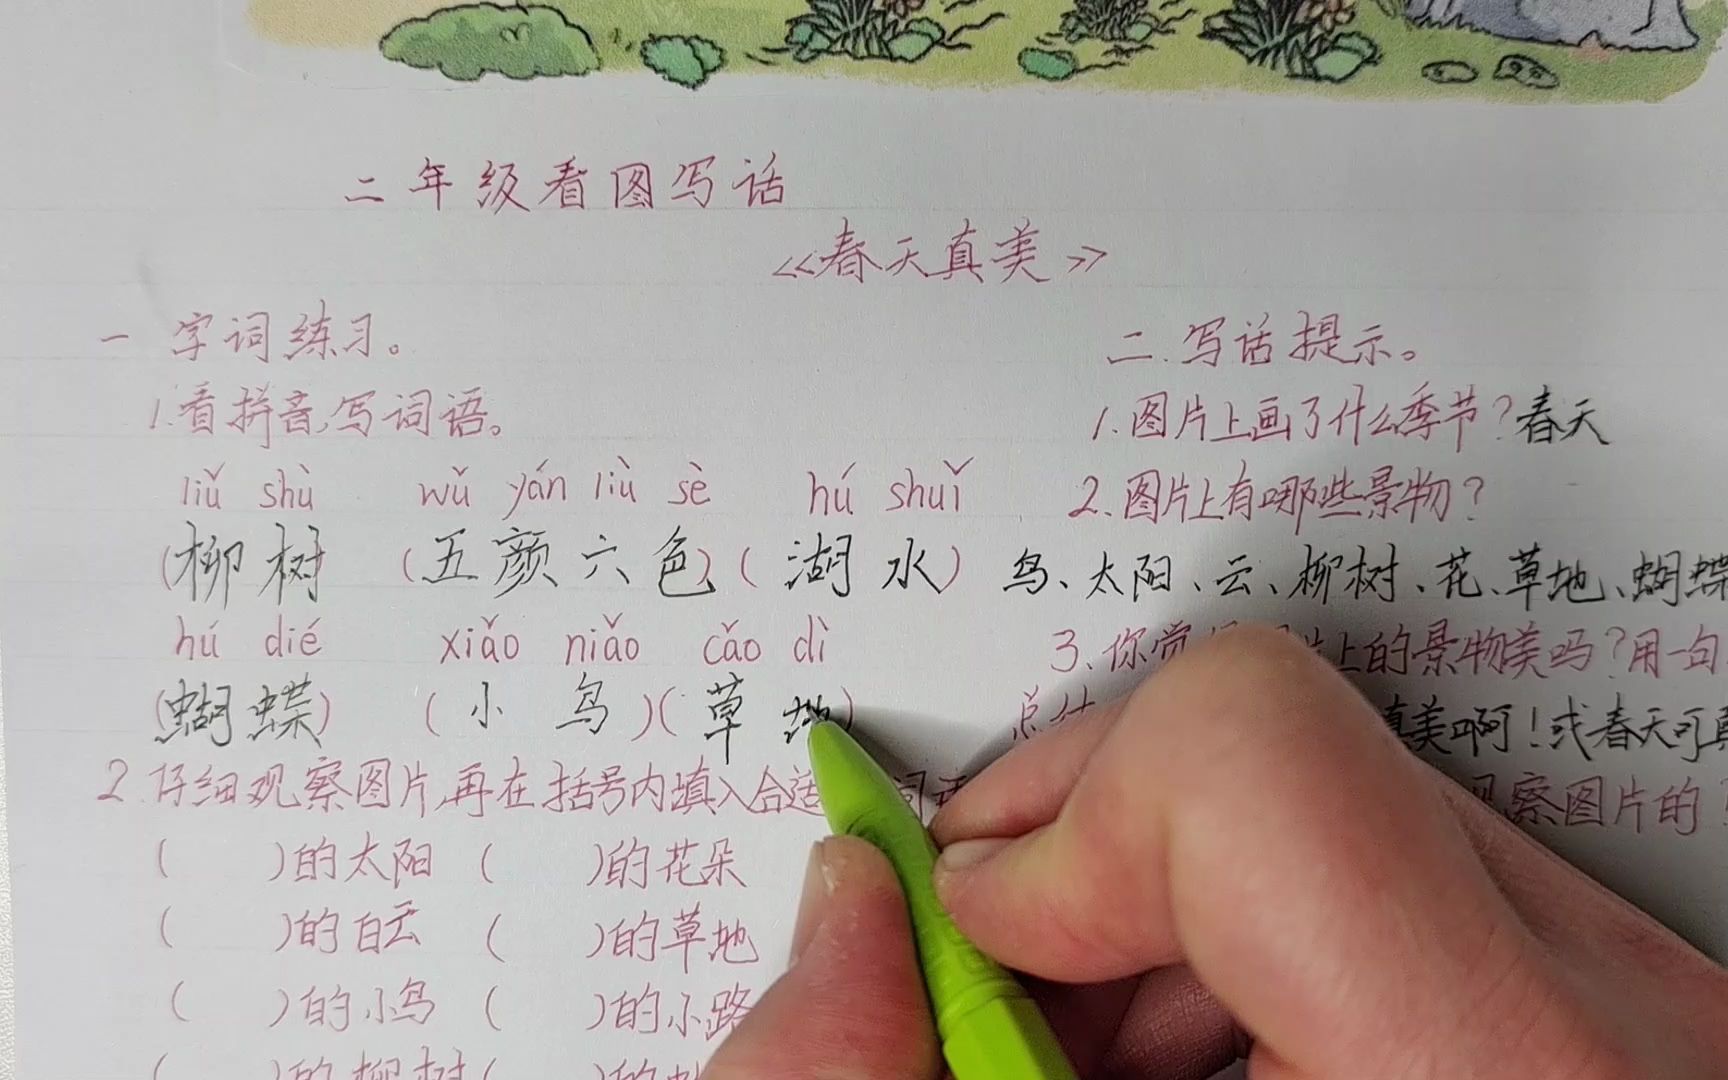 二年级看图写话
《春天真美》
一 字词练习。
1.看拼音,写词语。
liǔ shù wǔ yán liù sè hú shuǐ
(柳树 (五颜六色)(湖水)
hú dié xiǎo niǎo cǎo dì
(蝴蝶) (小鸟)(草地)
2.仔细观察图片,再在括号内填入合适 词
( )的太阳 ( )的花朵
( )的白云 ( )的草地
( )的小鸟 ( )的小路
( )的柳树( )的
二.写话提示。
1.图片上画了什么季节?春天
2.图片上有哪些景物?
鸟、太阳、云、柳树、花、草地、蝴蝶
3.你觉 上的景物美吗?用一句
总结 真美啊!或春天可真
观察图片的